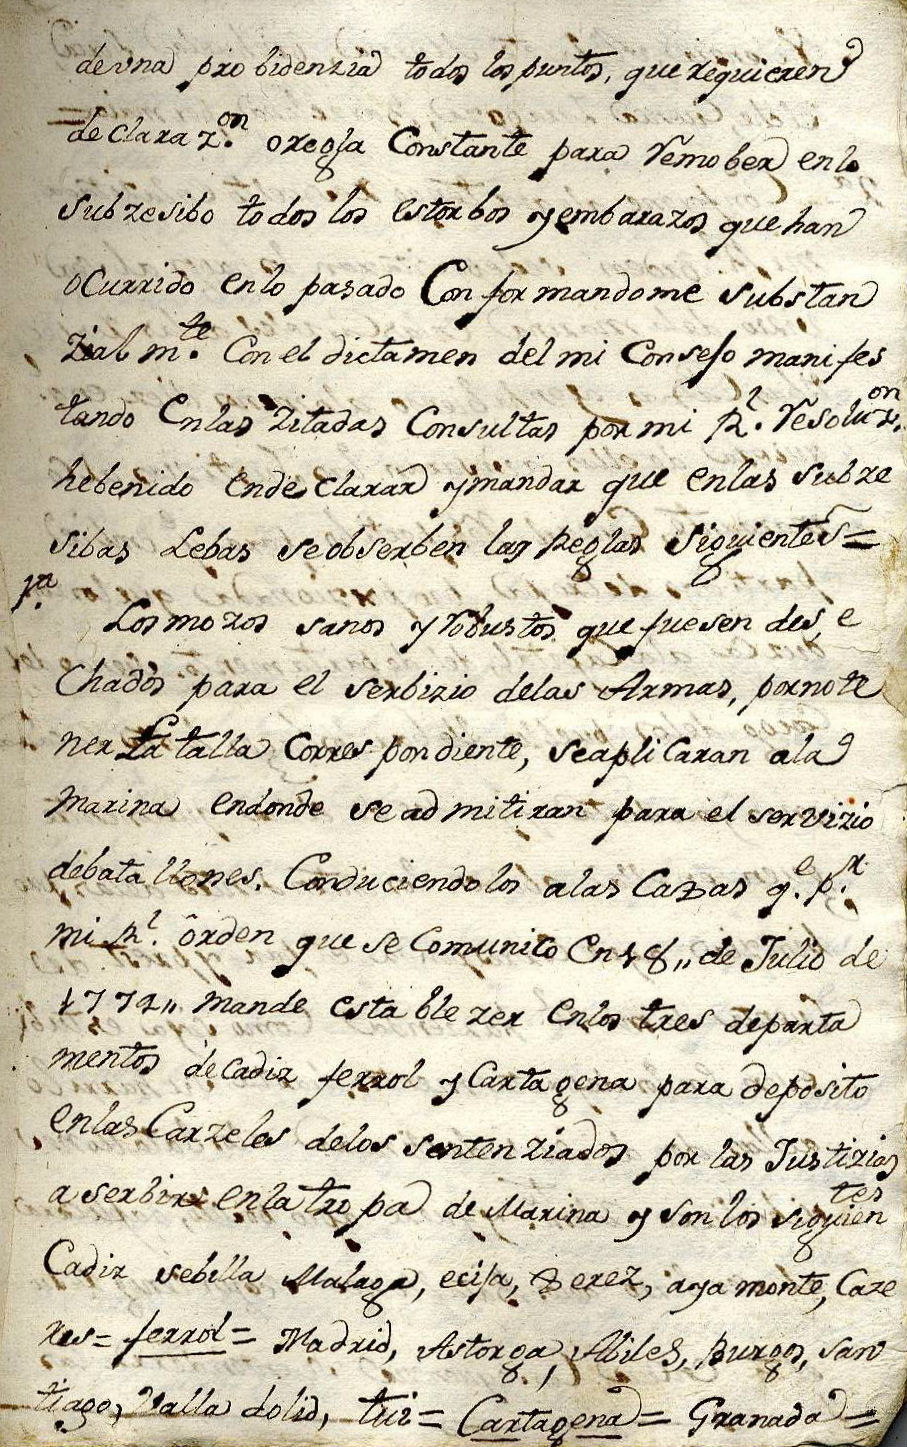 de vna probidenzia todos los puntos, que requieren
declaraz.on o regla Constante para remober en lo
subzesibo todos los estorbos y embarazos que han
ocurrido en lo pasado Conformandome substan
zialm.te Con el dictamen del mi Consejo manifes
tando en las zitadas Consultas por mi R.l resoluz.on
he benido en declarar y mandar que en las subze
sibas Lebas se obserben las Reglas siguientes=
1.a Los mozos sanos y robustos que fuesen des, e
chados para el serbizio de las Armas, por no te
ner La talla Correspondiente, se aplicaran a la
Marina en donde se admitiran para el servizio
de batallones. Conduciendolos a las Cazas q.e p.r
mi R.l orden que se Comunico en 18,, de Julio de
1772,, mande establezer en los tres departa
mentos de Cadiz ferrol y Cartagena para deposito
en las Carzeles de los sentenziados por las Justizias
a serbir en la tropa de Marina y son los siguientes
Cadiz sebilla Malaga, ecija, Serez, ayamonte, Caze
res= ferrol= Madrid, Astorga, Abiles, Burgos, san
tiago, Valladolid, tui= Cartagena= Granada=